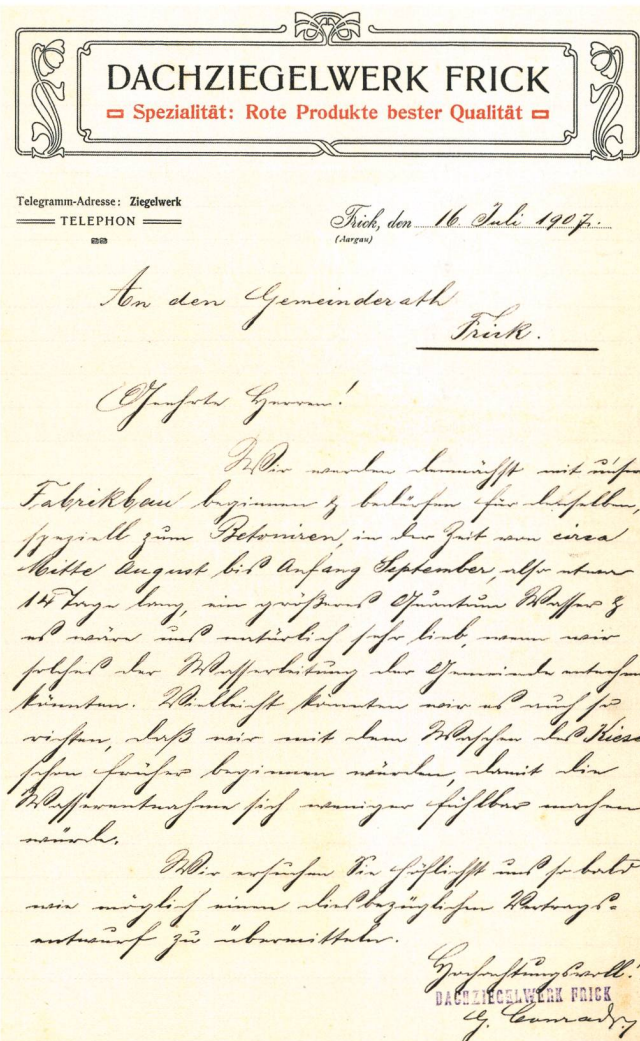 DACHZIEGELWERK FRICK
Spezialität: Rote Produkte bester Qualität
Telegramm-Adresse: Ziegelwerk
TELEPHON
Frick, den 16. Juli 1907.
(Aargau)
An den Gemeinderath
Frick.
Geehrte Herren!
Wir werden demnächst mit unsr
Fabrikbau beginnen & bedürfen für denselben,
speziell zum Betoniren, in der Zeit von circa
Mitte August bis Anfang September, also etwa
14 Tage lang, ein größeres Quantum Wasser &
es wäre uns natürlich sehr lieb, wenn wir
solches der Wasserleitung der Gemeinde entnehm
könnten. Vielleicht könnten wir es auch so
richten, daß wir mit dem Waschen des Kieses
schon früher beginnen würden, damit die
Wasserentnahme sich weniger fühlbar machen
würde.
Wir ersuchen Sie höflichst uns so bald
wie möglich einen diesbezüglichen Vertrags-
entwurf zu übermitteln.
Hochachtungsvoll!
DACHZIEGELWERK FRICK
G.